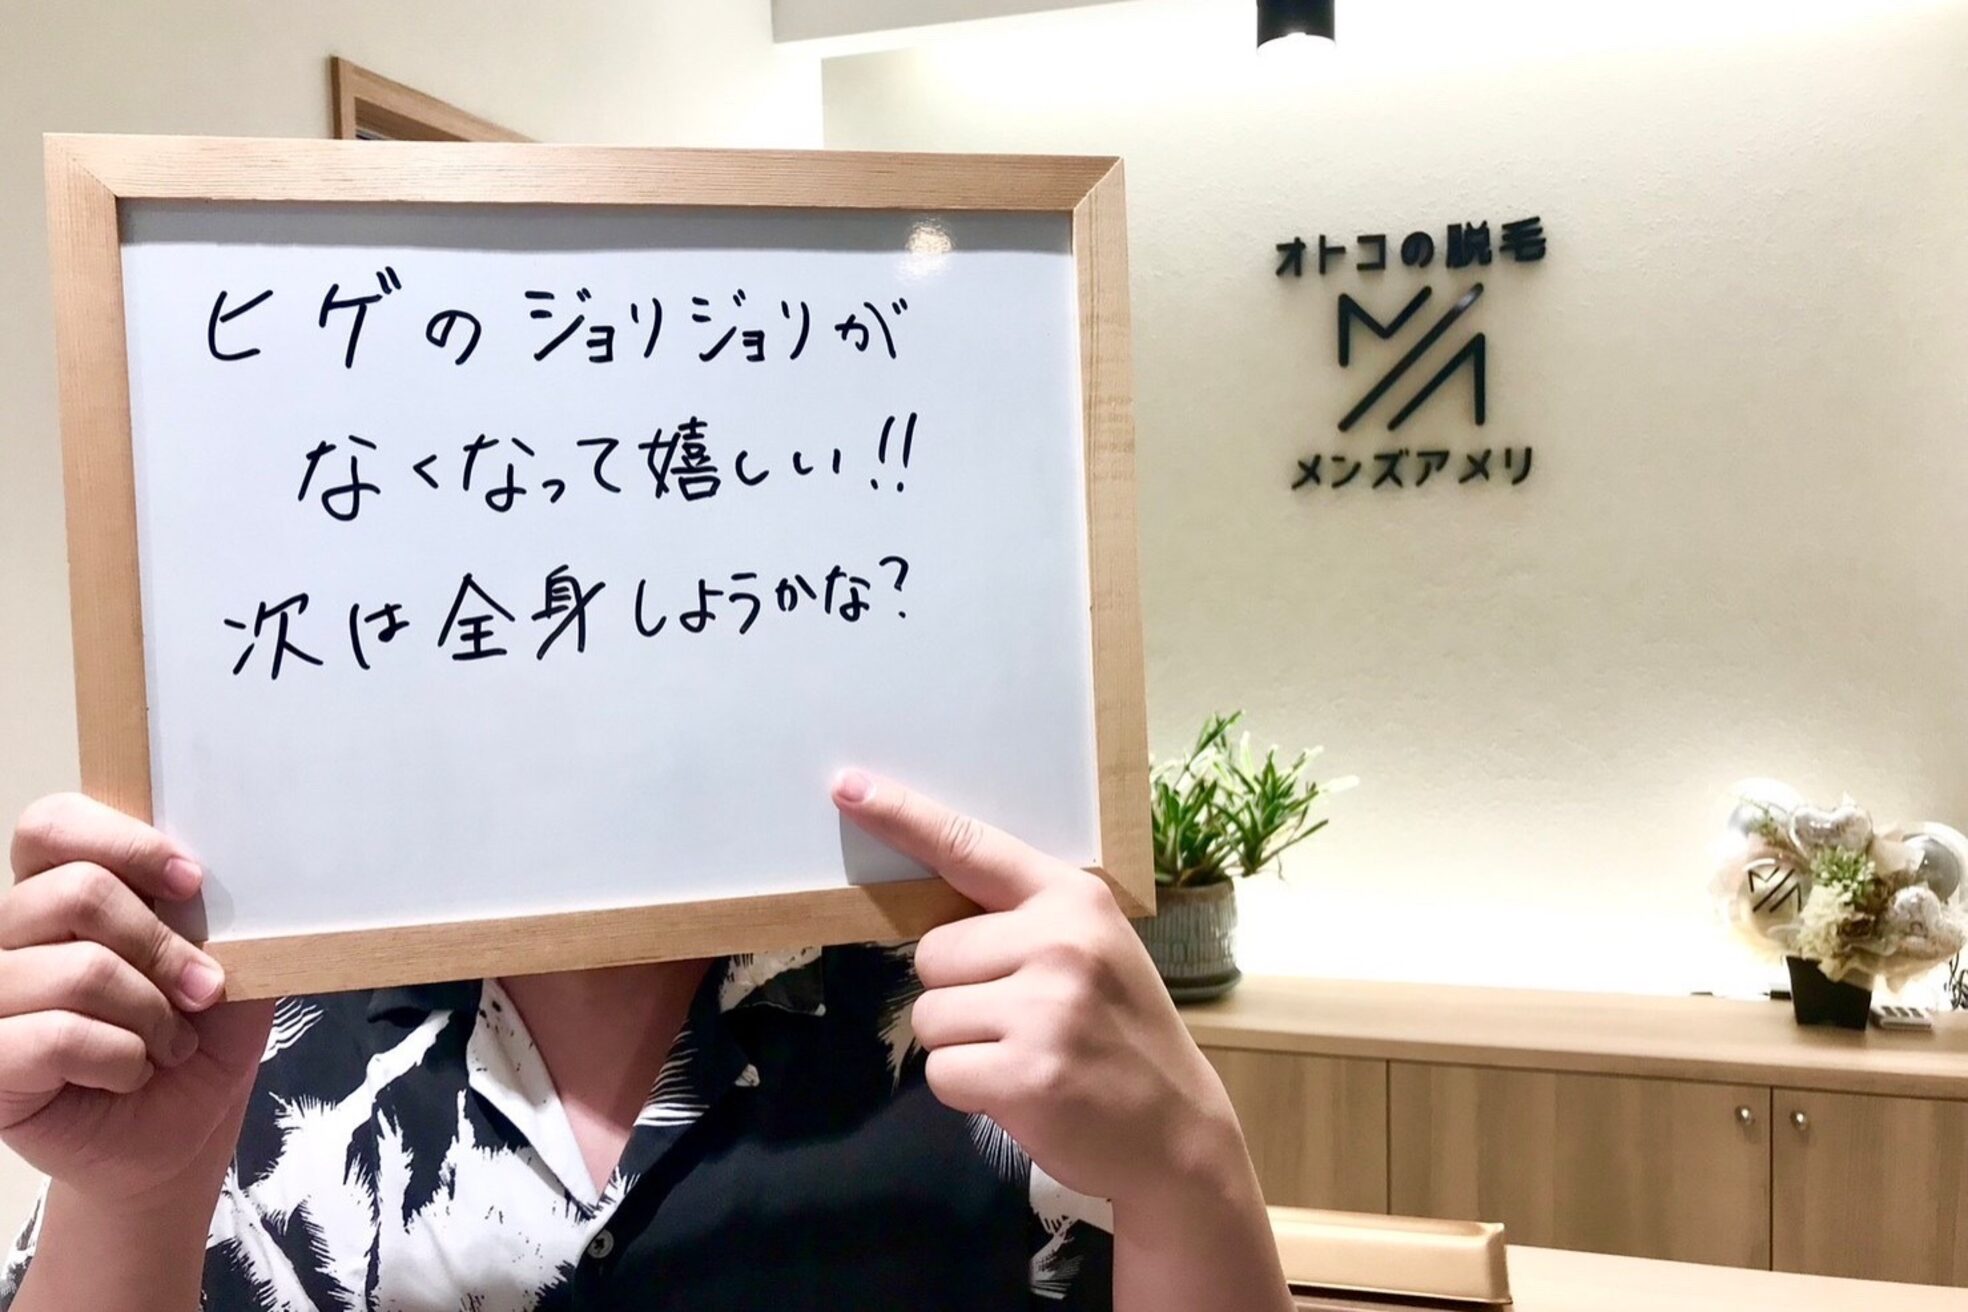 ヒゲのジョリジョリが
なくなって嬉しい!!
次は全身しようかな?
オトコの脱毛
MA
メンズアメリ
MA